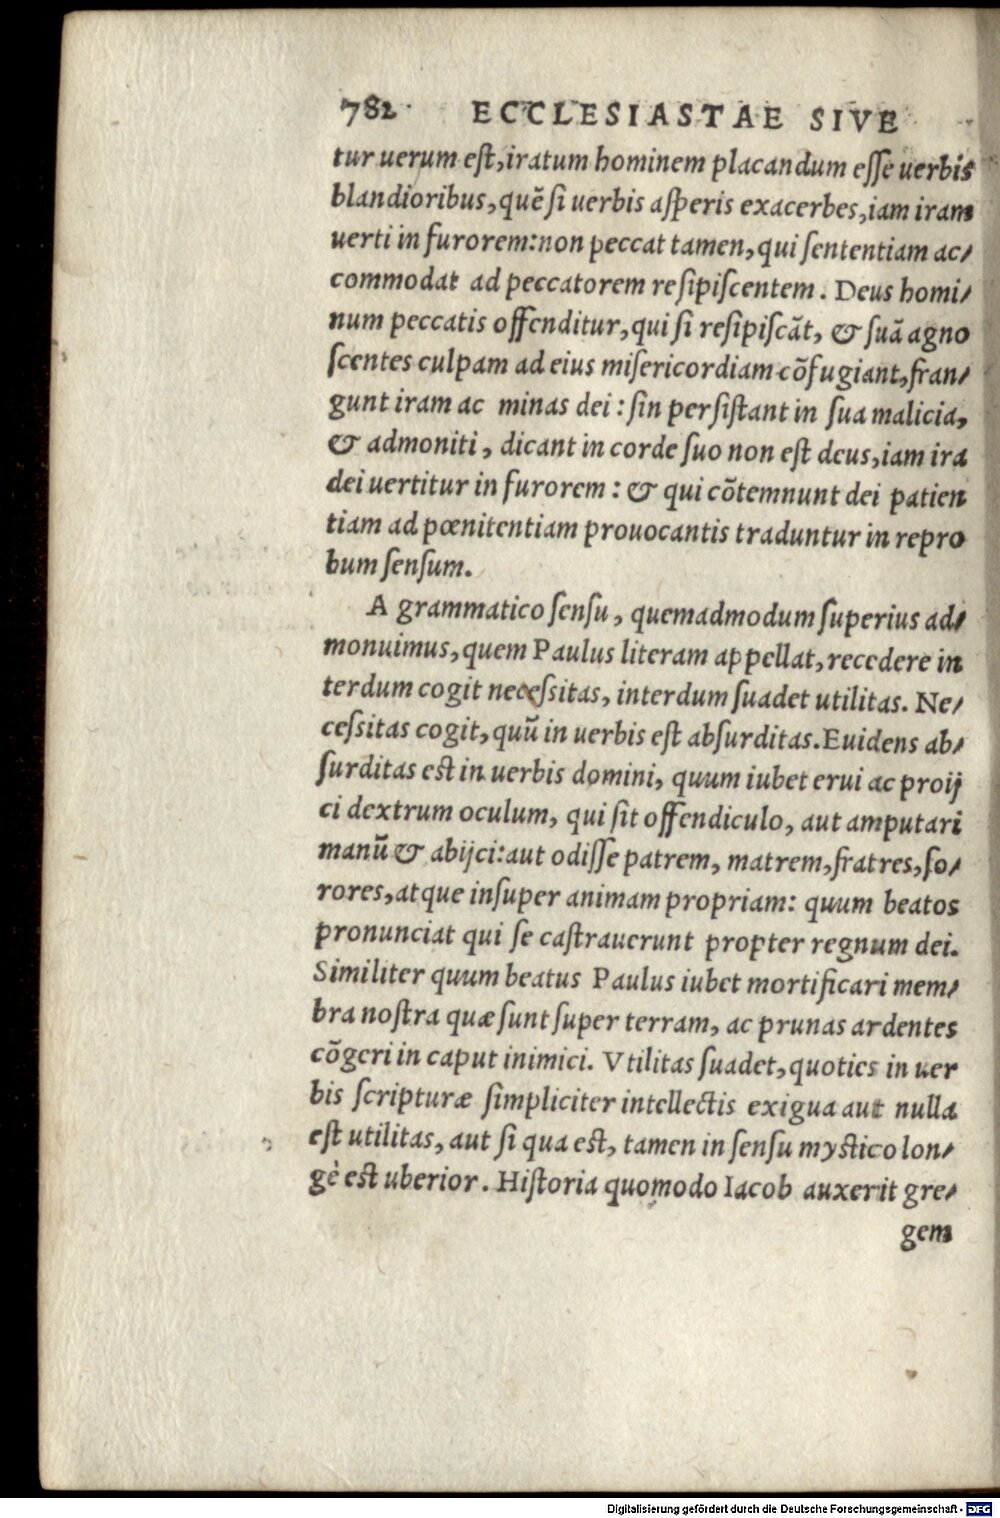 782 ECCLESIASTAE SIVE
tur uerum eſt, iratum hominem placandum eſſe uerbis
blandioribus, quẽ ſi uerbis aſperis exacerbes, iam iram
uerti in furorem: non peccat tamen, qui ſententiam ac/
commodat ad peccatorem reſipiſcentem. Deus homi/
num peccatis offenditur, qui ſi reſipiſcãt, & ſuã agno
ſcentes culpam ad eius miſericordiam cõfugiant, fran/
gunt iram ac minas dei: ſin perſiſtant in ſua malicia,
& admoniti, dicant in corde ſuo non eſt deus, iam ira
dei uertitur in furorem: & qui cõtemnunt dei patien
tiam ad pœnitentiam prouocantis traduntur in repro
bum ſenſum.
A grammatico ſenſu, quemadmodum ſuperius ad/
monuimus, quem Paulus literam appellat, recedere in
terdum cogit neceſſitas, interdum ſuadet utilitas. Ne/
ceſſitas cogit, quũ in uerbis eſt abſurditas. Euidens ab/
ſurditas eſt in uerbis domini, quum iubet erui ac proij
ci dextrum oculum, qui ſit offendiculo, aut amputari
manũ & abijci: aut odiſſe patrem, matrem, fratres, ſo/
rores, atque inſuper animam propriam: quum beatos
pronunciat qui ſe caſtrauerunt propter regnum dei.
Similiter quum beatus Paulus iubet mortificari mem/
bra noſtra quæ ſunt ſuper terram, ac prunas ardentes
cõgeri in caput inimici. Vtilitas ſuadet, quoties in uer
bis ſcripturæ ſimpliciter intellectis exigua aut nulla
eſt utilitas, aut ſi qua eſt, tamen in ſenſu myſtico lon/
gè eſt uberior. Hiſtoria quomodo Iacob auxerit gre/
gem
Digitalisierung gefördert durch die Deutsche Forschungsgemeinschaft - DFG